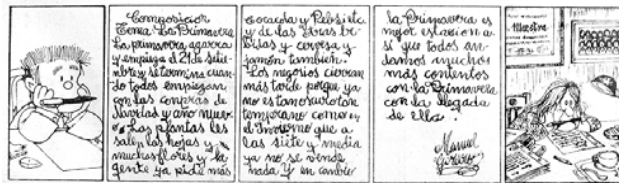 Composición
Tema: La Primavera
La primavera agarra
y empieza el 21 de setie-
mbre y se termina cuan-
do todos empiezan
con las compras de
Navidad y año nuevo
Las plantas les
salen las hojas y
muchas flores y la
gente ya pide más
cocacola y Pebsinta
y de las otras be-
bidas y cervesa y
jamón también.
Los negosios cierran
más tarde porque ya
no es tan oscuro tan
temprano como en
el Invierno que a
las siete y media
ya no se vende
nada y en cambio
la Primavera es
mejor estasion a-
sí que todos an-
damos muchos
más contentos
con la Primavera
con la llegada
de ella.
Manuel
Goreiro
Maestra